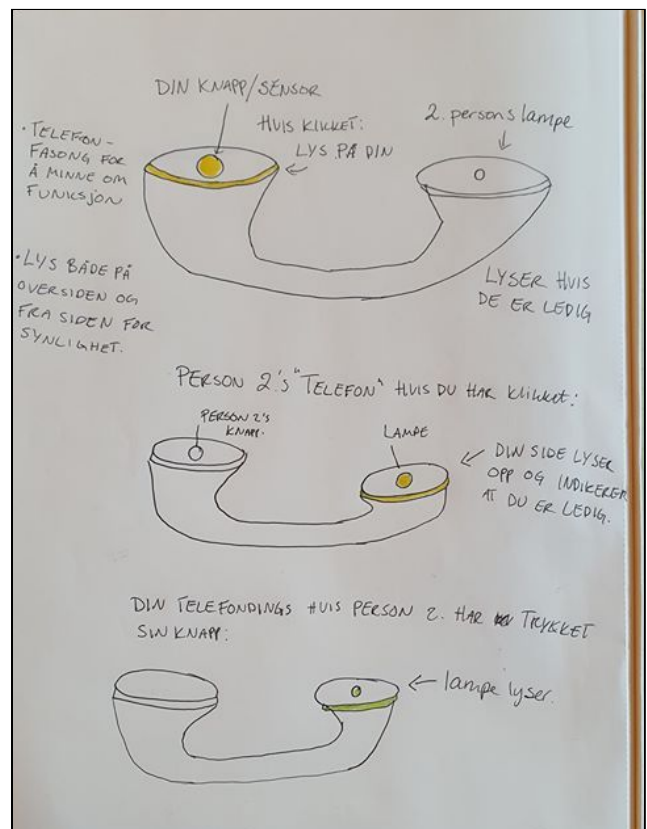 DIN KNAPP/SENSOR
HVIS KLIKKET:
LYS PÅ DIN
2. persons lampe
• TELEFON-
FASONG FOR
Å MINNE OM
FUNKSJON
• LYS BÅDE PÅ
OVERSIDEN OG
FRA SIDEN FOR
SYNLIGHET.
LYSER HVIS
DE ER LEDIG
PERSON 2.'S "TELEFON" HVIS DU HAR KLIKKET:
PERSON 2'S
KNAPP.
LAMPE
DIN SIDE LYSER
OPP OG INDIKERER
AT DU ER LEDIG.
DIN TELEFONDINGS HVIS PERSON 2. HAR TRYKKET
SIN KNAPP:
lampe lyser.